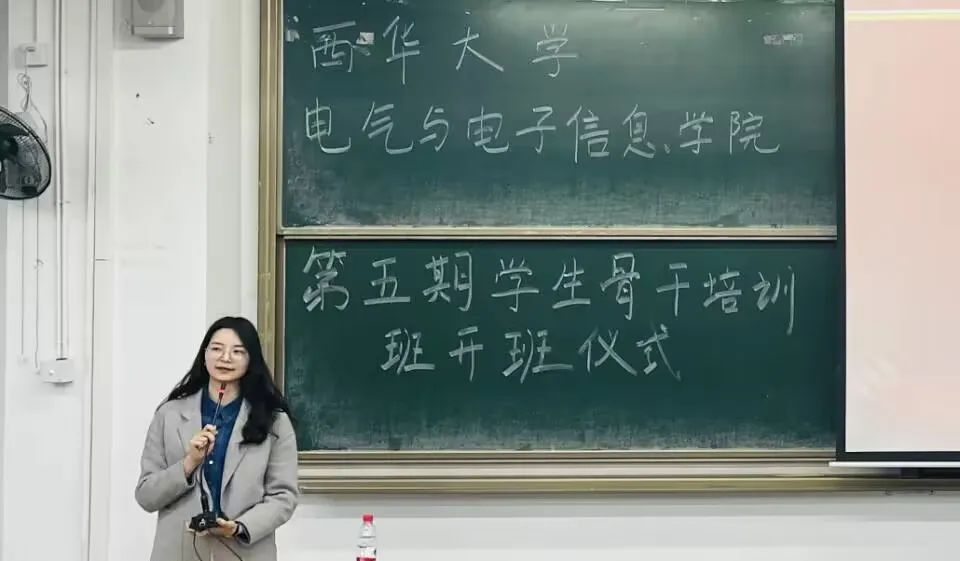 西华大学
电气与电子信息学院
第五期学生骨干培训
班开班仪式